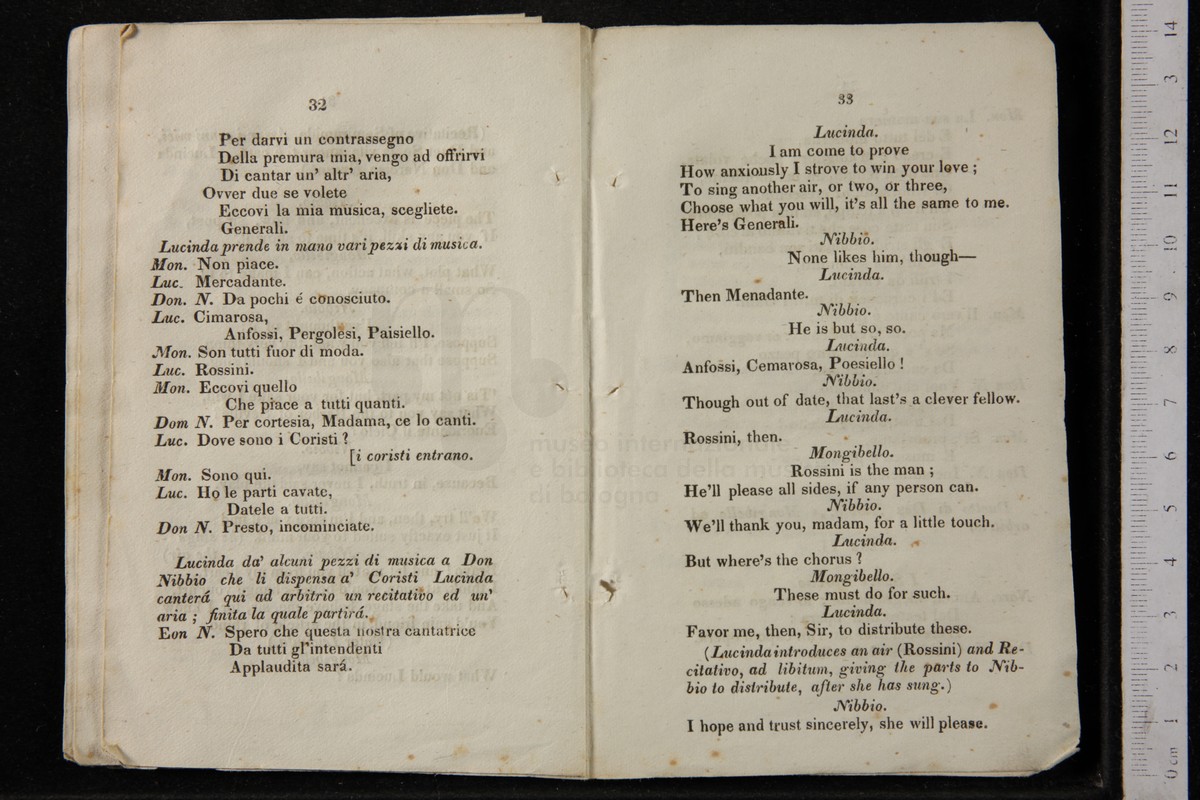 32
Per darvi un contrassegno
Della premura mia, vengo ad offrirvi
Di cantar un' altr' aria,
Ovver due se volete
Eccovi la mia musica, scegliete.
Generali.
Lucinda prende in mano vari pezzi di musica.
Mon. Non piace.
Luc. Mercadante.
Don. N. Da pochi é conosciuto.
Luc. Cimarosa,
Anfossi, Pergolesi, Paisiello.
Mon. Son tutti fuor di moda.
Luc. Rossini.
Mon. Eccovi quello
Che piace a tutti quanti.
Dom N. Per cortesia, Madama, ce lo canti.
Luc. Dove sono i Coristi ?
[i coristi entrano.
Mon. Sono qui.
Luc. Ho le parti cavate,
Datele a tutti.
Don N. Presto, incominciate.
Lucinda da' alcuni pezzi di musica a Don
Nibbio che li dispensa a' Coristi Lucinda
canterá qui ad arbitrio un recitativo ed un'
aria ; finita la quale partirá.
Eon N. Spero che questa nostra cantatrice
Da tutti gl'intendenti
Applaudita sará.
33
Lucinda.
I am come to prove
How anxiously I strove to win your love ;
To sing another air, or two, or three,
Choose what you will, it's all the same to me.
Here's Generali.
Nibbio.
None likes him, though—
Lucinda.
Then Menadante.
Nibbio.
He is but so, so.
Lucinda.
Anfossi, Cemarosa, Poesiello !
Nibbio.
Though out of date, that last's a clever fellow.
Lucinda.
Rossini, then.
Mongibello.
Rossini is the man ;
He'll please all sides, if any person can.
Nibbio.
We'll thank you, madam, for a little touch.
Lucinda.
But where's the chorus ?
Mongibello.
These must do for such.
Lucinda.
Favor me, then, Sir, to distribute these.
(Lucinda introduces an air (Rossini) and Re-
citativo, ad libitum, giving the parts to Nib-
bio to distribute, after she has sung.)
Nibbio.
I hope and trust sincerely, she will please.
museo internazionale
e biblioteca della musica
di bologna
0 cm 1 2 3 4 5 6 7 8 9 10 11 12 3 14